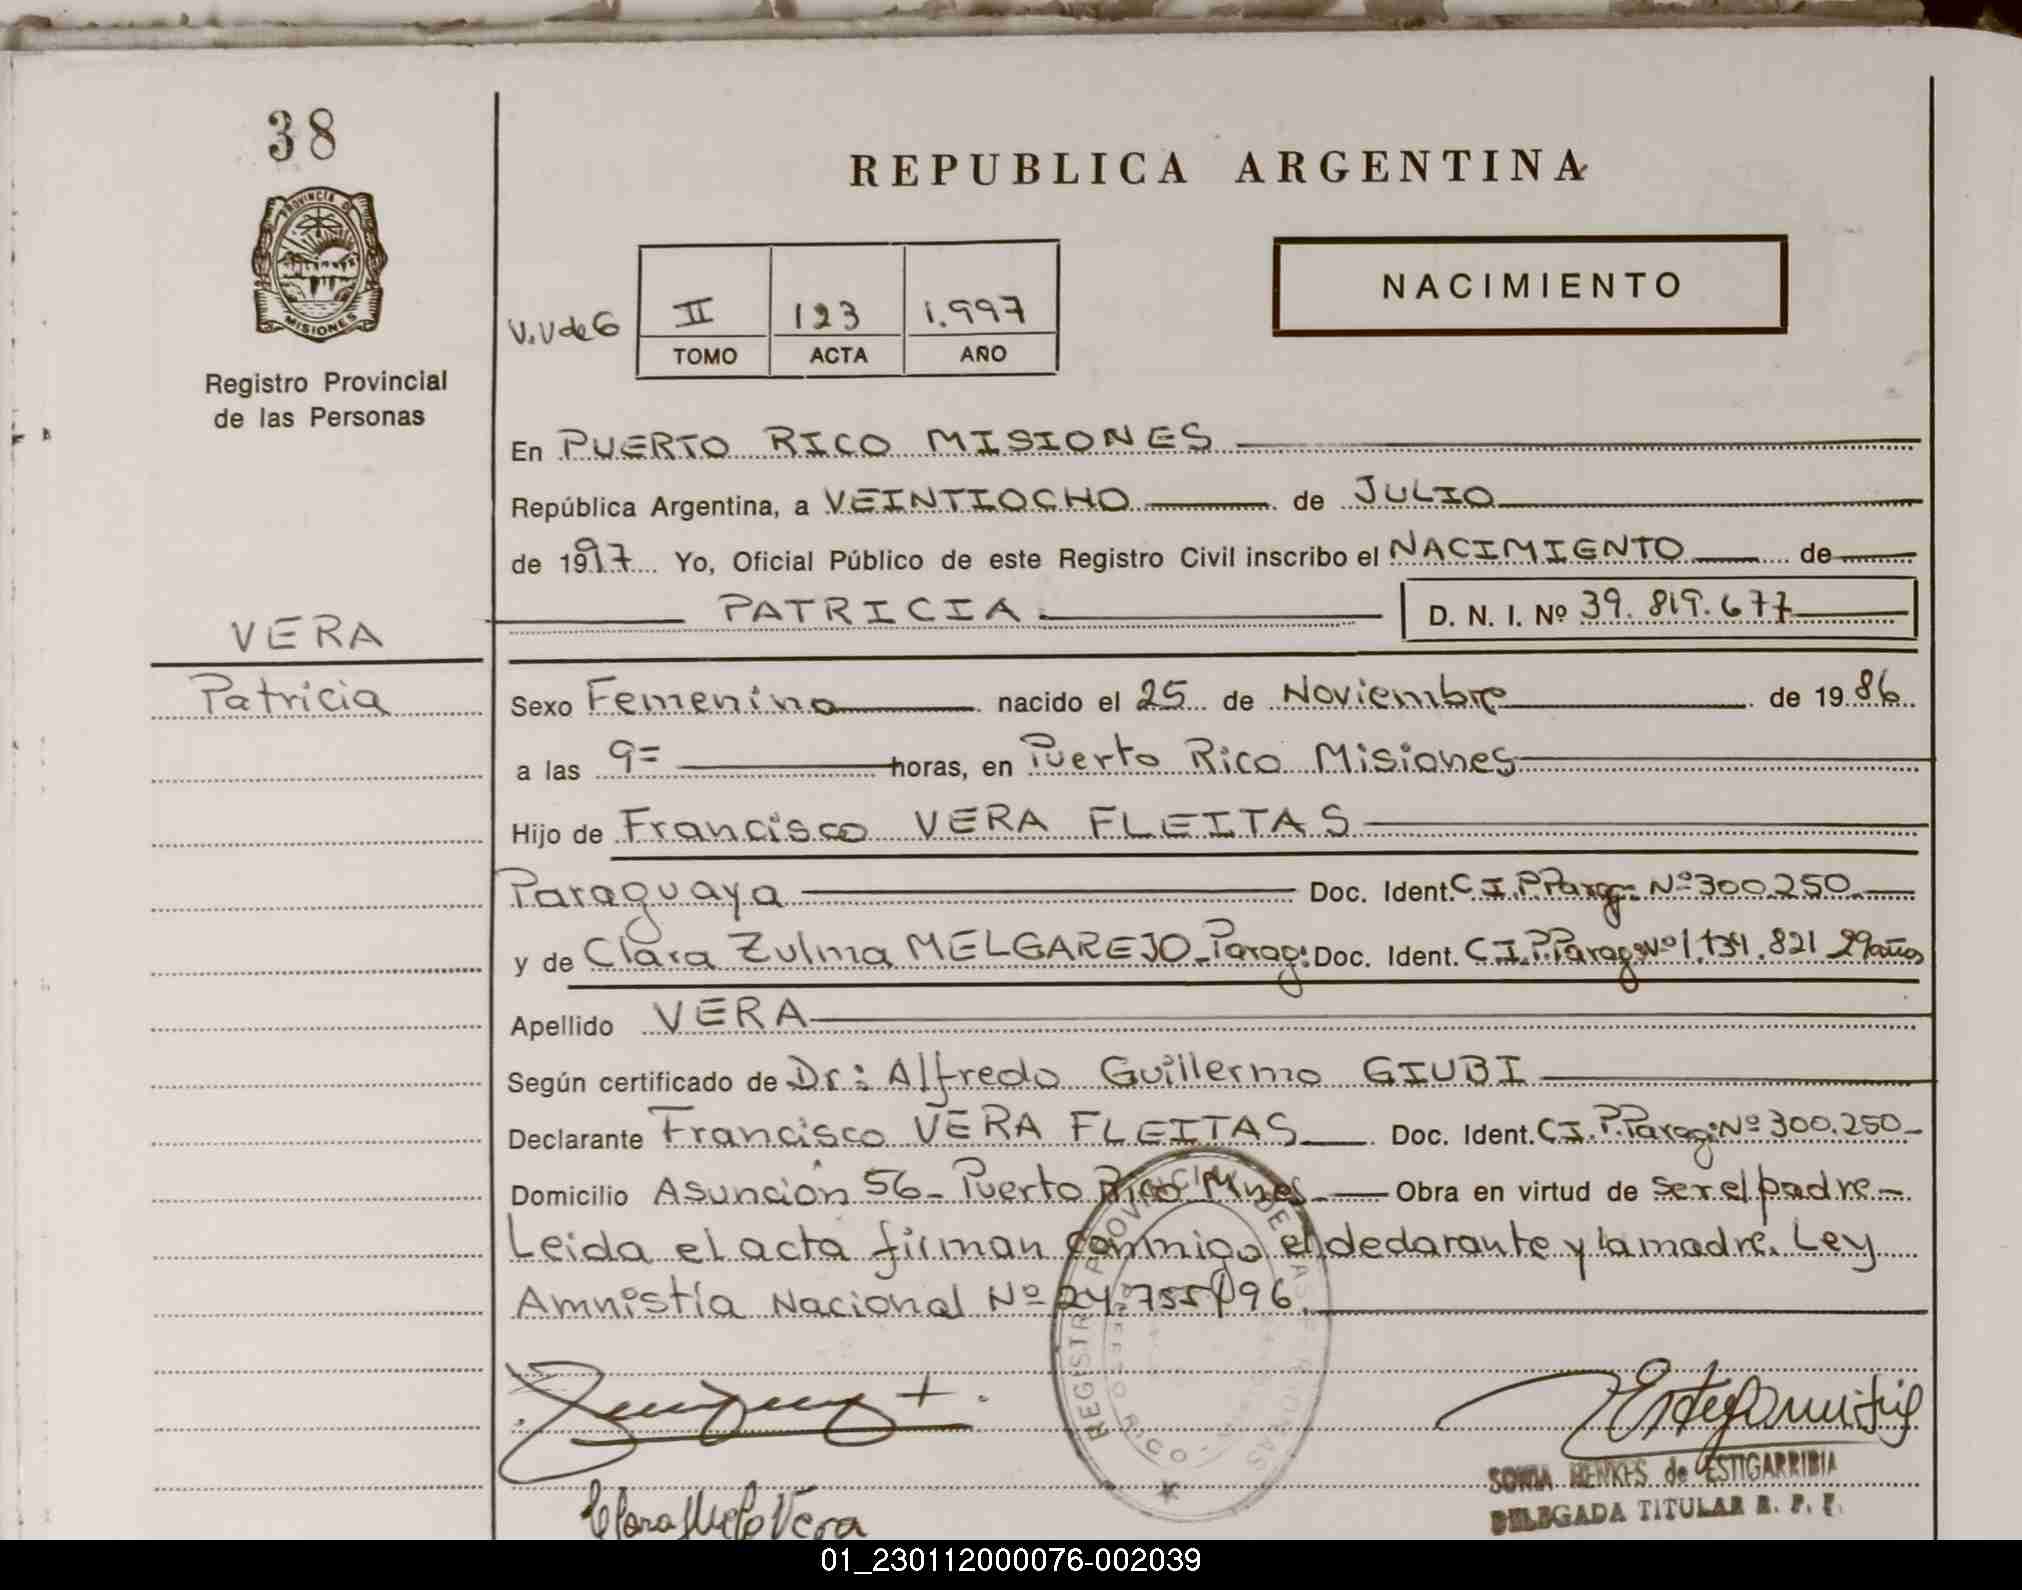 38
PROVINCIA DE
MISIONES
Registro Provincial
de las Personas
REPUBLICA ARGENTINA
NACIMIENTO
V.V de G
II 123 1.997
TOMO ACTA AÑO
En PUERTO RICO MISIONES
República Argentina, a VEINTIOCHO de JULIO
de 1997 Yo, Oficial Público de este Registro Civil inscribo el NACIMIENTO de
PATRICIA D. N. I. Nº 39.819.677
VERA
Patricia
Sexo Femenino nacido el 25 de Noviembre de 1986
a las 9= horas, en Puerto Rico Misiones
Hijo de Francisco VERA FLEITAS
Paraguaya Doc. Ident. C.I.P.Parag: Nº 300.250
y de Clara Zulma MELGAREJO-Parag: Doc. Ident. C.I.P.Parag Nº 821 29 años
Apellido VERA
Según certificado de Dr: Alfredo Guillermo GIUBI
Declarante Francisco VERA FLEITAS Doc. Ident. C.I.P.Parag: Nº 300.250-
Domicilio Asunción 56- Puerto Rico Mnes- Obra en virtud de ser el padre-
Leida el acta firman conmigo el declarante y la madre. Ley
Amnistía Nacional Nº 24.755/96.
REGISTRO PROVINCIAL DE LAS PERSONAS
RICO
SONIA HENKES de ESTIGARRIBIA
DELEGADA TITULAR R. P. P.
Clara Vera
01_230112000076-002039